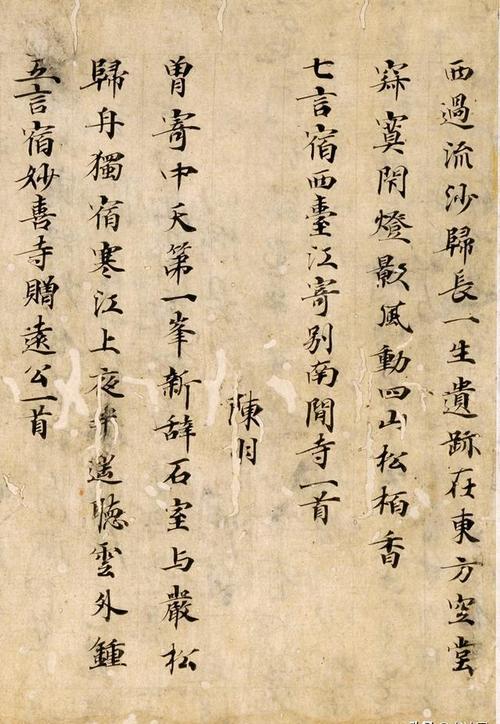 西過流沙歸長一生遺跡在東方空堂
寂寞閇燈影風動四山松栢香
七言宿西臺江寄别南閒寺一首
陳月
曽寄中天第一峯新辞石室与嚴松
歸舟獨宿寒江上夜半遥聴雲外鍾
五言宿妙善寺贈遠公一首